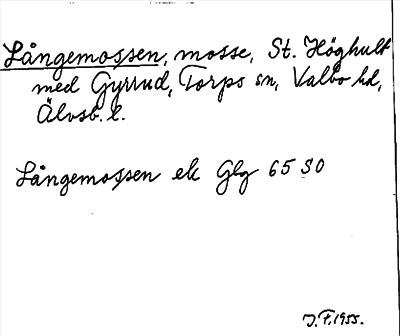 Långemossen, mosse, St. Höghult
med Gyrrud, Torps sn, Valbo hd,
Älvsb. l.
Långemossen ek Glg 65 SO
J.F. 1955.